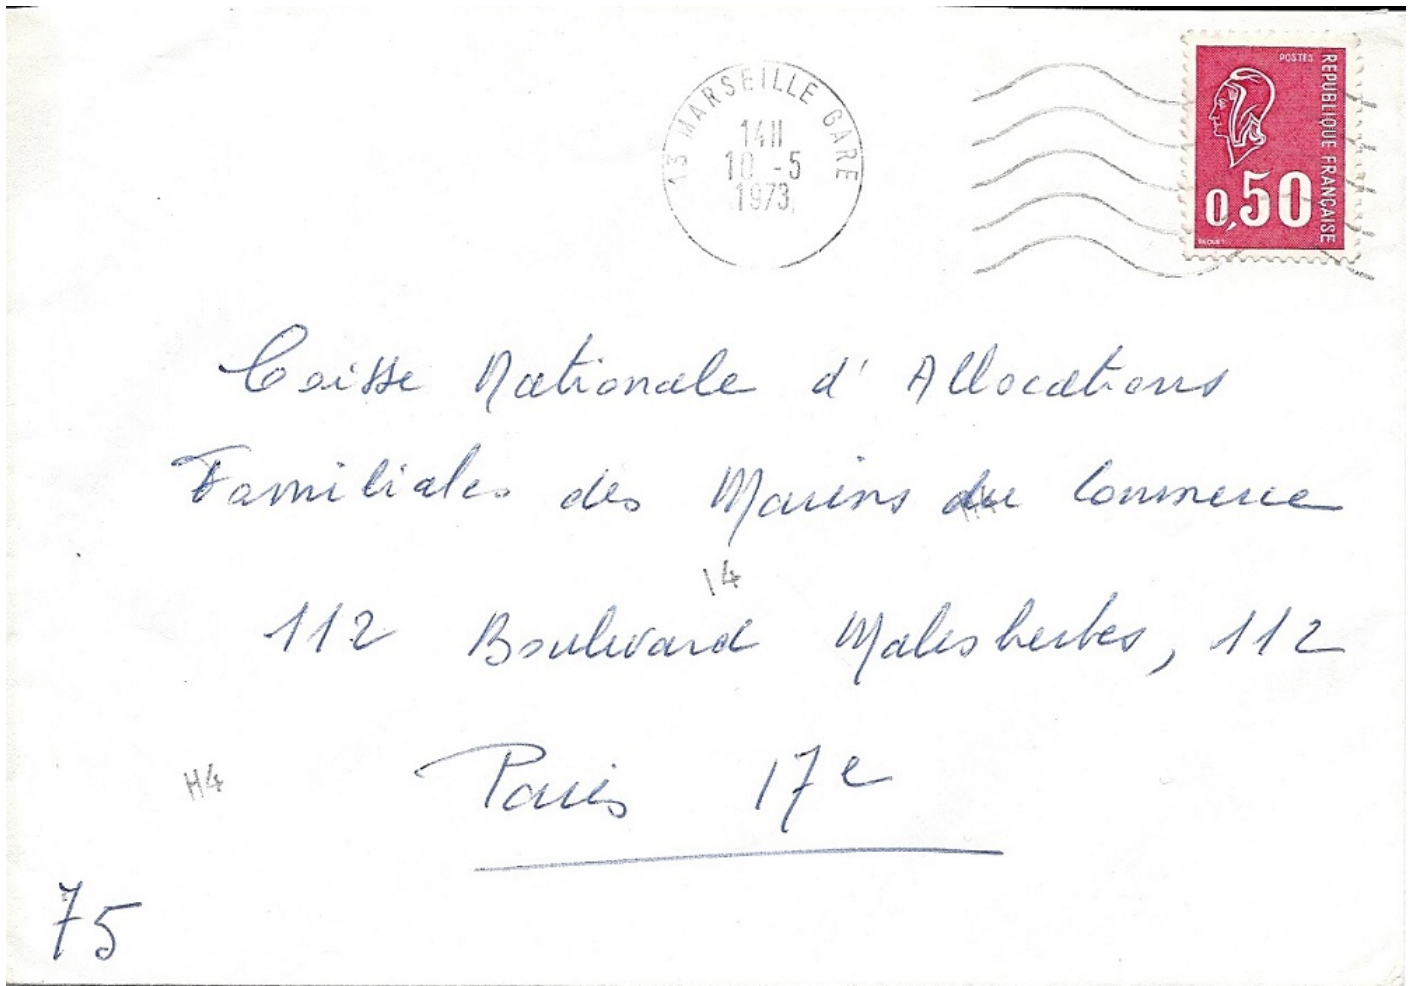 13 MARSEILLE GARE
14H
10 -5
1973
POSTES
REPUBLIQUE FRANÇAISE
0,50
Caisse Nationale d'Allocations
Familiales des Marins du Commerce
14
112 Boulevard Malesherbes, 112
H4
Paris 17e
75